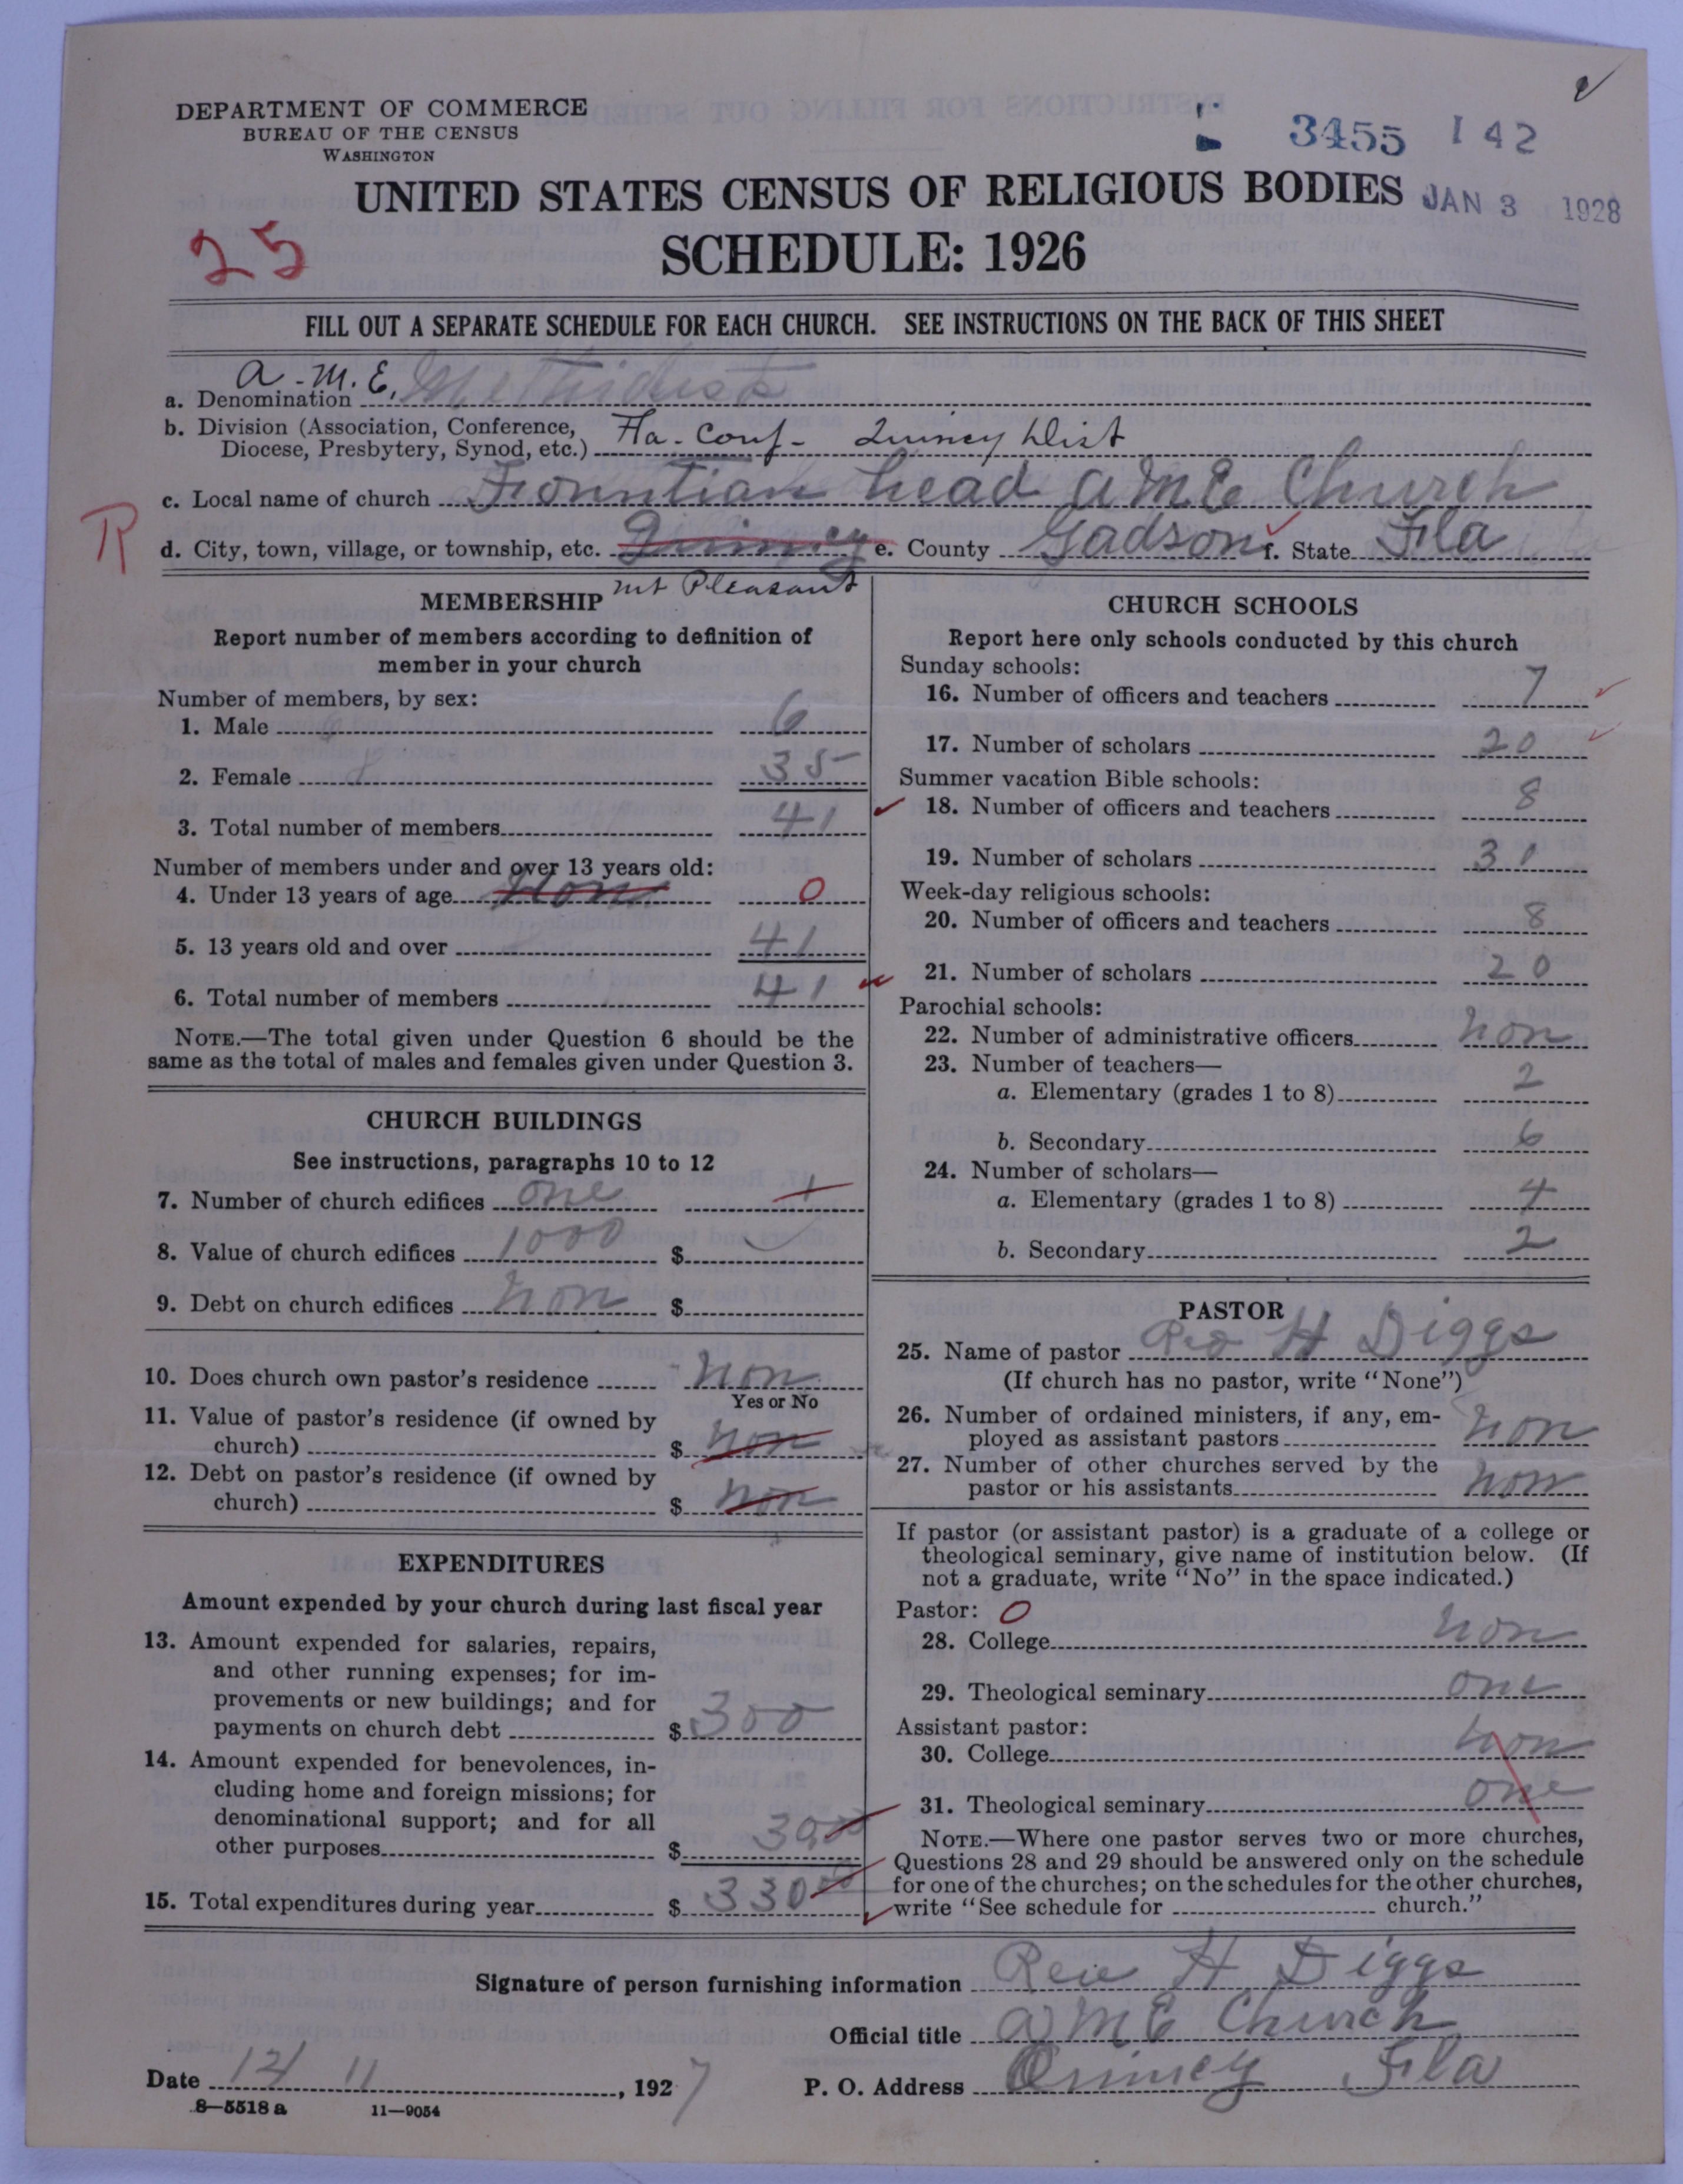 DEPARTMENT OF COMMERCE
BUREAU OF THE CENSUS
WASHINGTON
3455 142
UNITED STATES CENSUS OF RELIGIOUS BODIES
JAN 3 1928
SCHEDULE: 1926
25
FILL OUT A SEPARATE SCHEDULE FOR EACH CHURCH. SEE INSTRUCTIONS ON THE BACK OF THIS SHEET
a. Denomination A.M.E. Methidists
b. Division (Association, Conference, Diocese, Presbytery, Synod, etc.) Fla-Conf- Quincy Dist
c. Local name of church Fountian head AME Church
R
d. City, town, village, or township, etc. Quincy e. County Gadson f. State Fla
Mt Pleasant
MEMBERSHIP
Report number of members according to definition of
member in your church
Number of members, by sex:
1. Male 6
2. Female 35
3. Total number of members 41
Number of members under and over 13 years old:
4. Under 13 years of age Non 0
5. 13 years old and over 41
6. Total number of members 41
NOTE.—The total given under Question 6 should be the
same as the total of males and females given under Question 3.
CHURCH BUILDINGS
See instructions, paragraphs 10 to 12
7. Number of church edifices one 1
8. Value of church edifices 1000 $
9. Debt on church edifices non $
10. Does church own pastor's residence Non
Yes or No
11. Value of pastor's residence (if owned by
church) $ non
12. Debt on pastor's residence (if owned by
church) $ non
EXPENDITURES
Amount expended by your church during last fiscal year
13. Amount expended for salaries, repairs,
and other running expenses; for im-
provements or new buildings; and for
payments on church debt $ 300
14. Amount expended for benevolences, in-
cluding home and foreign missions; for
denominational support; and for all
other purposes $ 30.00
15. Total expenditures during year $ 330 00
CHURCH SCHOOLS
Report here only schools conducted by this church
Sunday schools:
16. Number of officers and teachers 7
17. Number of scholars 20
Summer vacation Bible schools:
18. Number of officers and teachers 8
19. Number of scholars 31
Week-day religious schools:
20. Number of officers and teachers 8
21. Number of scholars 20
Parochial schools:
22. Number of administrative officers non
23. Number of teachers—
a. Elementary (grades 1 to 8) 2
b. Secondary 6
24. Number of scholars—
a. Elementary (grades 1 to 8) 4
b. Secondary 2
PASTOR
25. Name of pastor Rev H Diggs
(If church has no pastor, write "None")
26. Number of ordained ministers, if any, em-
ployed as assistant pastors non
27. Number of other churches served by the
pastor or his assistants non
If pastor (or assistant pastor) is a graduate of a college or
theological seminary, give name of institution below. (If
not a graduate, write "No" in the space indicated.)
Pastor: 0
28. College non
29. Theological seminary one
Assistant pastor:
30. College non
31. Theological seminary one
NOTE.—Where one pastor serves two or more churches,
Questions 28 and 29 should be answered only on the schedule
for one of the churches; on the schedules for the other churches,
write "See schedule for church."
Signature of person furnishing information Rev H Diggs
Official title AME Church
Date 12/ 11, 1927 P. O. Address Quincy Fla
8—5518 a 11—9054